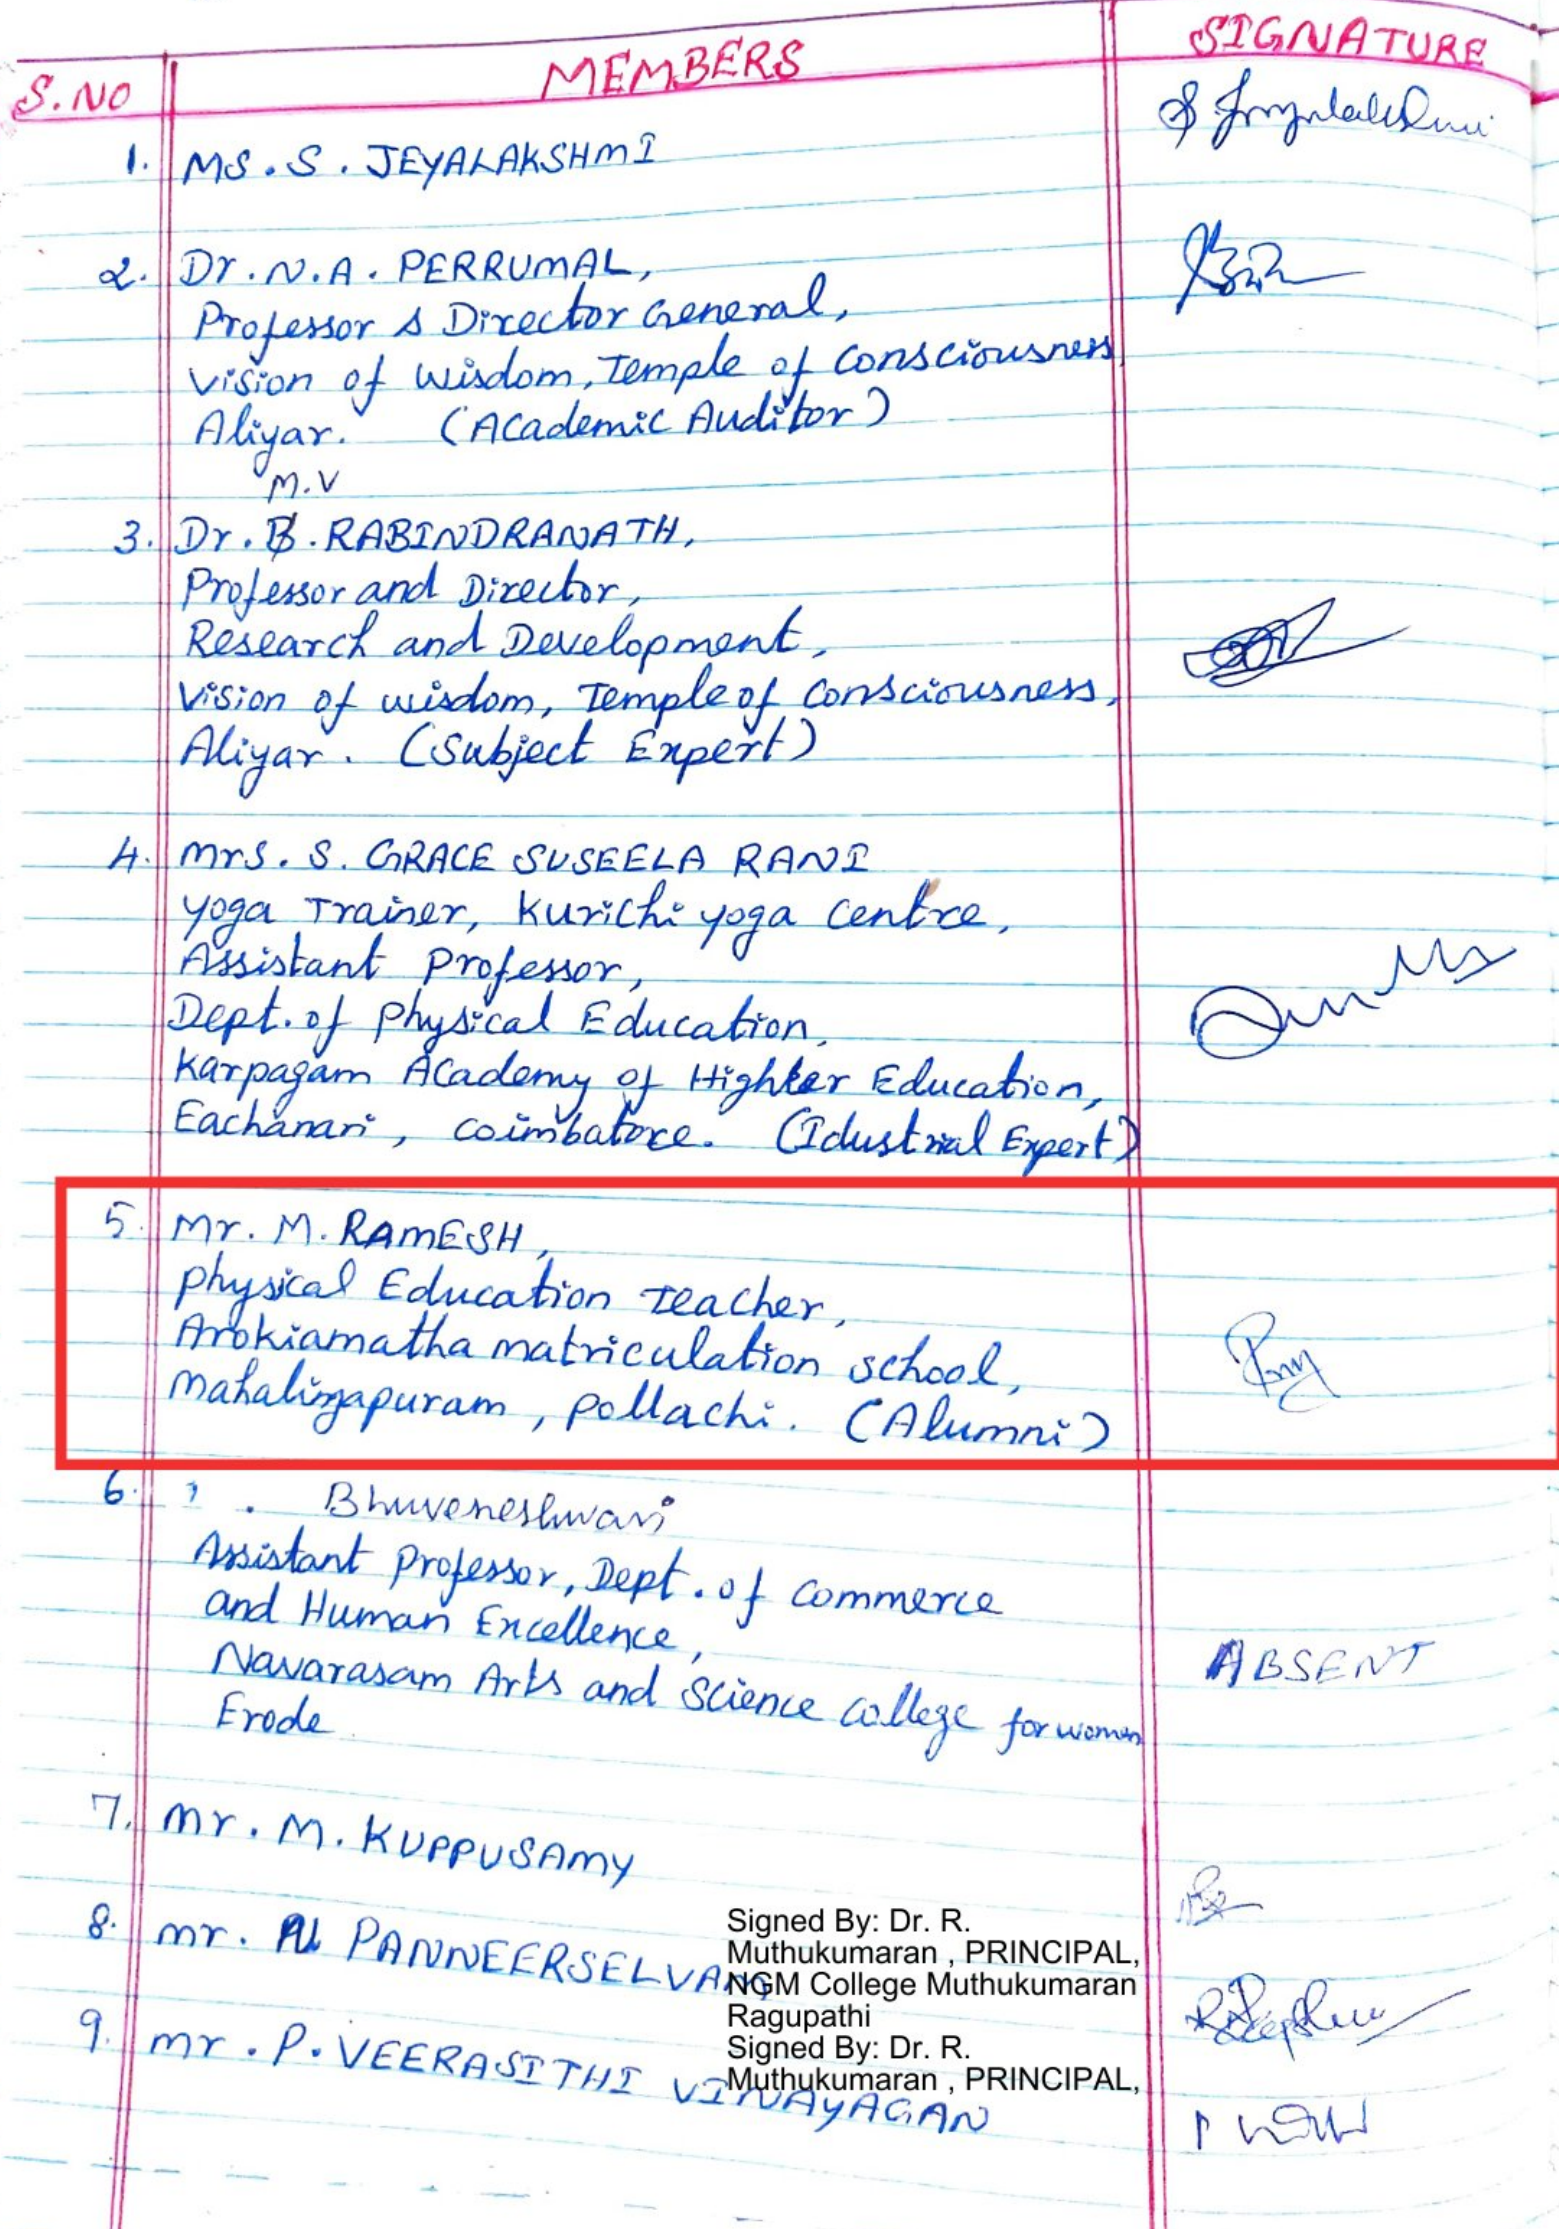 S.NO MEMBERS SIGNATURE
1. MS. S. JEYALAKSHMI
2. Dr. N.A. PERRUMAL,
Professor & Director General,
Vision of Wisdom, Temple of Consciousness
Aliyar. (Academic Auditor)
M.V
3. Dr. B. RABINDRANATH,
Professor and Director,
Research and Development,
Vision of wisdom, Temple of Consciousness,
Aliyar. (Subject Expert)
4. Mrs. S. GRACE SUSEELA RANI
Yoga Trainer, Kurichi yoga Centre,
Assistant Professor,
Dept. of Physical Education,
Karpagam Academy of Highter Education,
Eachanari, Coimbatore. (Idustrial Expert)
5. Mr. M. RAMESH,
Physical Education Teacher,
Arokiamatha matriculation school,
Mahalingapuram, Pollachi. (Alumni)
6. Bhuveneshwari
Assistant Professor, Dept. of Commerce
and Human Excellence,
Navarasam Arts and Science College for women
Erode
ABSENT
7. Mr. M. KUPPUSAMY
8. Mr. PANNEERSELVAM
9. Mr. P. VEERASITHI VINAYAGAN
Signed By: Dr. R.
Muthukumaran , PRINCIPAL,
NGM College Muthukumaran
Ragupathi
Signed By: Dr. R.
Muthukumaran , PRINCIPAL,